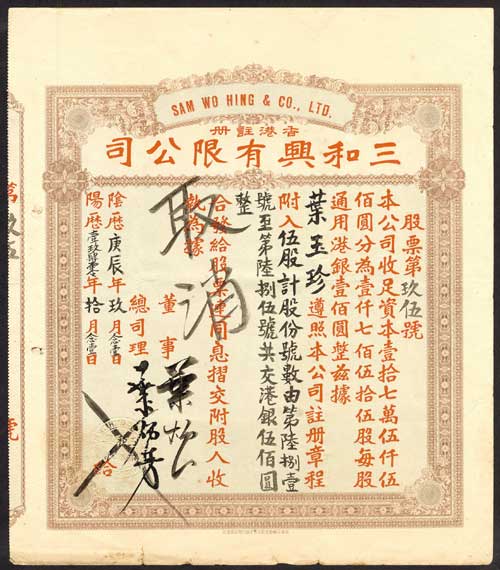 SAM WO HING & CO., LTD.
香港註册
三和興有限公司
股票第玖伍號
本公司收足資本壹拾七萬伍仟伍
佰圓分為壹仟七佰伍拾伍股每股
通用港銀壹佰圓整茲據
葉玉珍遵照本公司註册章程
附入伍股計股份號數由第陸捌壹
號至第陸捌伍號共交港銀伍佰圓
整
合發給股票連同息摺交附股人收
執為據
取消
董事葉
總司理葉
陰歷庚辰年玖月念壹日
陽歷壹玖肆零年拾月念壹日
給
第玖伍號